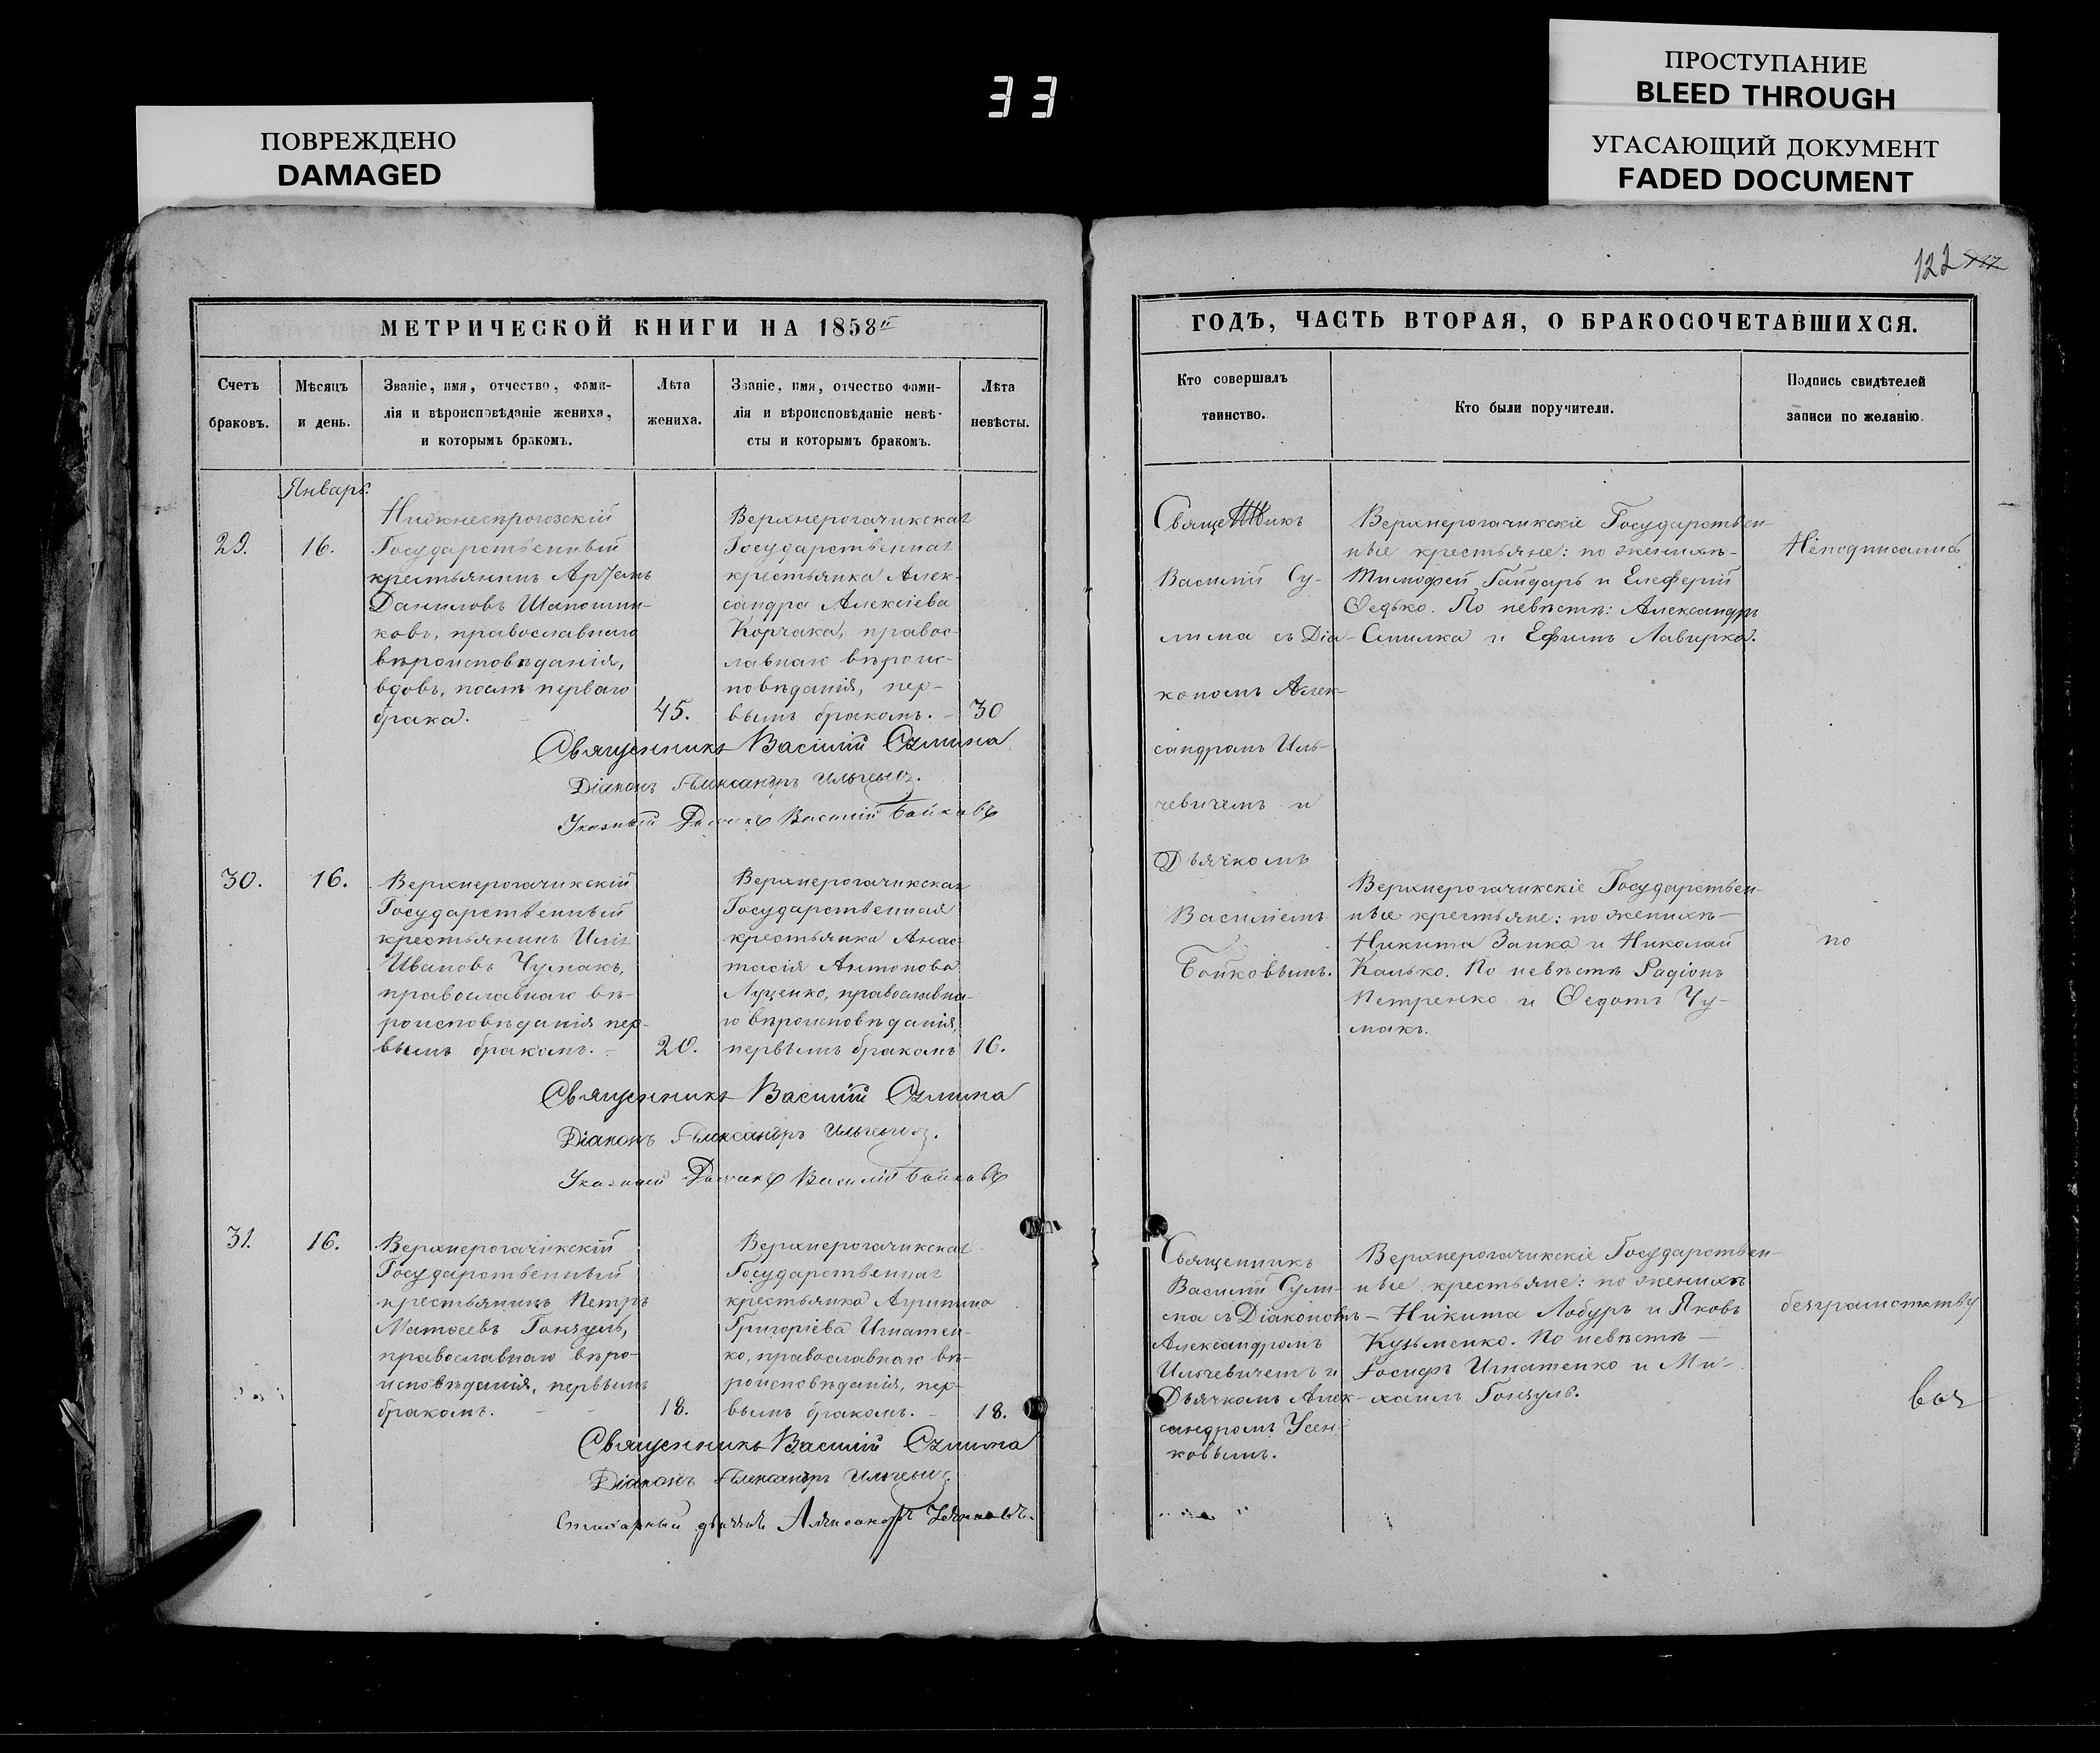 33
ПОВРЕЖДЕНО
DAMAGED
ПРОСТУПАНИЕ
BLEED THROUGH
УГАСАЮЩИЙ ДОКУМЕНТ
FADED DOCUMENT
122
МЕТРИЧЕСКОЙ КНИГИ НА 1858й
Счетъ браковъ.
Мѣсяцъ и день.
Званіе, имя, отчество, фами-
лія и вѣроисповѣданіе жениха,
и которымъ бракомъ.
Лѣта жениха.
Званіе, имя, отчество фами-
лія и вѣроисповѣданіе невѣ-
сты и которымъ бракомъ.
Лѣта невѣсты.
Январь.
29.
16.
Нижнесѣрогозскій
Государственный
крестьянинъ Артемъ
Даниловъ Шапошни-
ковъ, православнаго
вѣроисповѣданія,
вдовъ, послѣ перваго
брака.
45.
Верхнерогачикская
Государственная
крестьянка Алек-
сандра Алексіева
Корчака, правос-
лавнаго вѣроис-
повѣданія, пер-
вымъ бракомъ. –
30
Священникъ Василій Сулима
Діаконъ Александръ Ильчевичъ.
Указный Дьячекъ Василій Бойковъ
30.
16.
Верхнерогачикскій
Государственный
крестьянинъ Илія
Ивановъ Чумакъ,
православнаго вѣ-
роисповѣданія пер-
вымъ бракомъ. –
20.
Верхнерогачикская
Государственная
крестьянка Анас-
тасія Антонова
Луценко, православна-
го вѣроисповѣданія,
первымъ бракомъ
16.
Священникъ Василій Сулима
Діаконъ Александръ Ильчевичъ.
Указный Дьячекъ Василій Бойковъ
31.
16.
Верхнерогачикскій
Государственный
крестьянинъ Петръ
Матѳеевъ Гонзуль,
православнаго вѣро-
исповѣданія, первымъ
бракомъ. – –
18.
Верхнерогачикская
Государственная
крестьянка Агрипина
Григоріева Игнатен-
ко, православнаго вѣ-
роисповѣданія, пер-
вымъ бракомъ. –
18.
Священникъ Василій Сулима
Діаконъ Александръ Ильчевичъ.
дьячекъ Александръ
ГОДЪ, ЧАСТЬ ВТОРАЯ, О БРАКОСОЧЕТАВШИХСЯ.
Кто совершалъ
таинство.
Кто были поручители.
Подпись свидѣтелей
записи по желанію.
Священникъ
Василій Су-
лима съ Діа-
кономъ Алек-
сандромъ Иль-
чевичемъ и
Дьячкомъ
Василіемъ
Бойковымъ.
Верхнерогачикскіе Государствен-
ные крестьяне: по женихѣ –
Тимофей Гайдарь и Елеферій
Ѳедько. По невѣстѣ: Александръ
Синилка и Ефимъ Лавирко.
Неподписались
Верхнерогачикскіе Государствен-
ные крестьяне: по женихѣ –
Никита Заика и Николай
Калько. По невѣстѣ Радіонъ
Петренко и Ѳедотъ Чу-
макъ.
по
Священникъ
Василій Сули-
ма съ Діакономъ
Александромъ
Ильчевичемъ и
Дьячкомъ Алек-
сандромъ Усен-
ковымъ.
Верхнерогачикскіе Государствен-
ные крестьяне: по женихѣ
– Никита Лобуръ и Яковъ
Кузьменко. По невѣстѣ –
Іосифъ Игнатенко и Ми-
хаилъ Гонзуль.
безграмотству